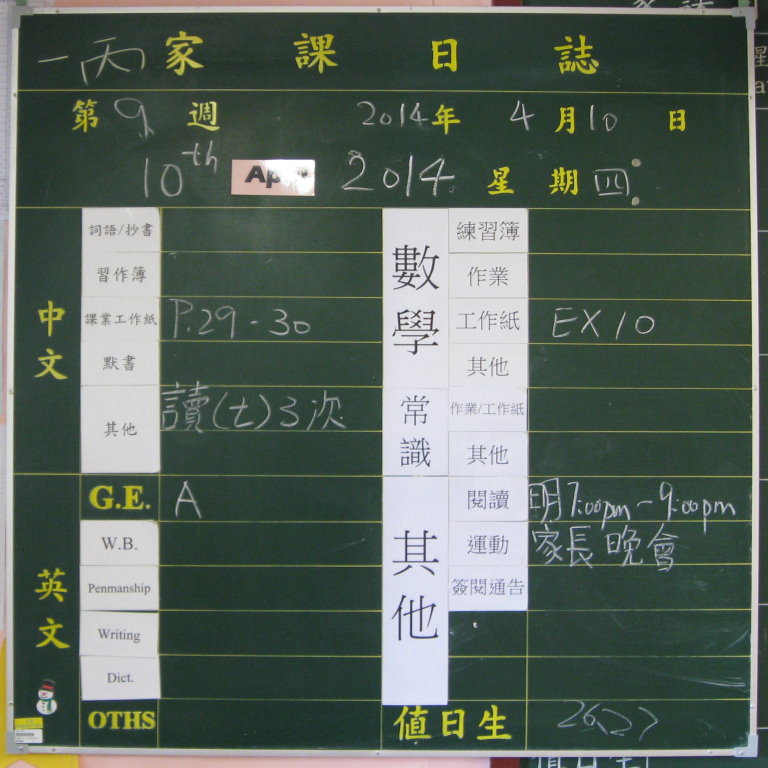 一丙 家課日誌
第 9 週 2014年 4月10日
10th April 2014 星期四
中文
詞語/抄書
習作簿
課業工作紙 P.29-30
默書
其他 讀(七)3次
英文
G.E. A
W.B.
Penmanship
Writing
Dict.
OTHS
數學
練習簿
作業
工作紙 EX 10
其他
常識
作業/工作紙
其他
其他
閱讀 明7:00pm-9:00pm
運動 家長晚會
簽閱通告
值日生 26,27